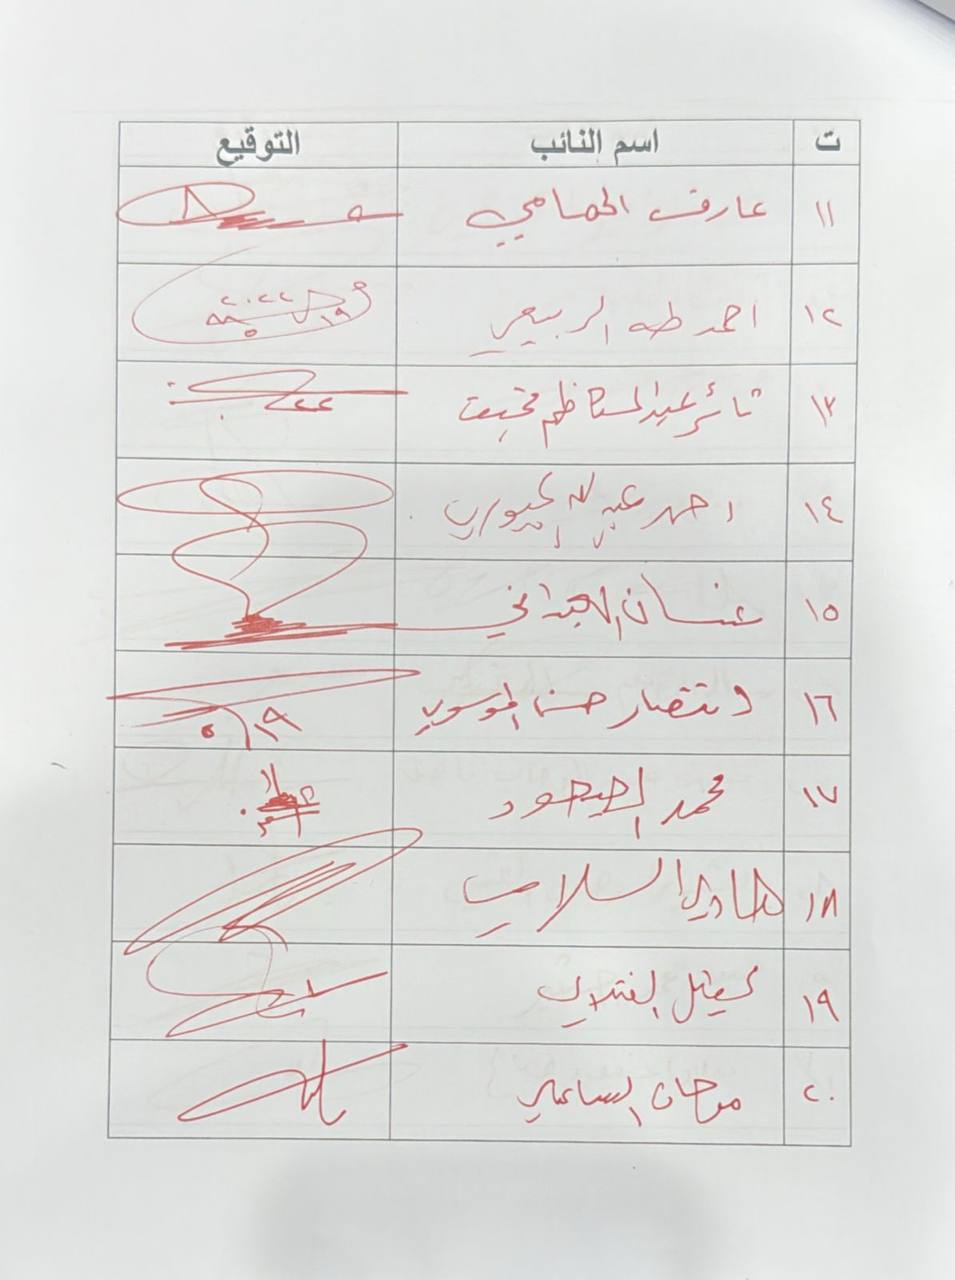 ت اسم النائب التوقيع
١١ عارف الحمامي
١٢ احمد طه الربيعي
١٣ ثائر عبد الكاظم
١٤ احمد عبدالله الجبوري
١٥ غسان العيداني
١٦ انتصار حسن الموسوي
١٧ محمد الصيهود
١٨ هادي السلامي
١٩ عقيل الفتلاوي
٢٠ مرحان الساعدي